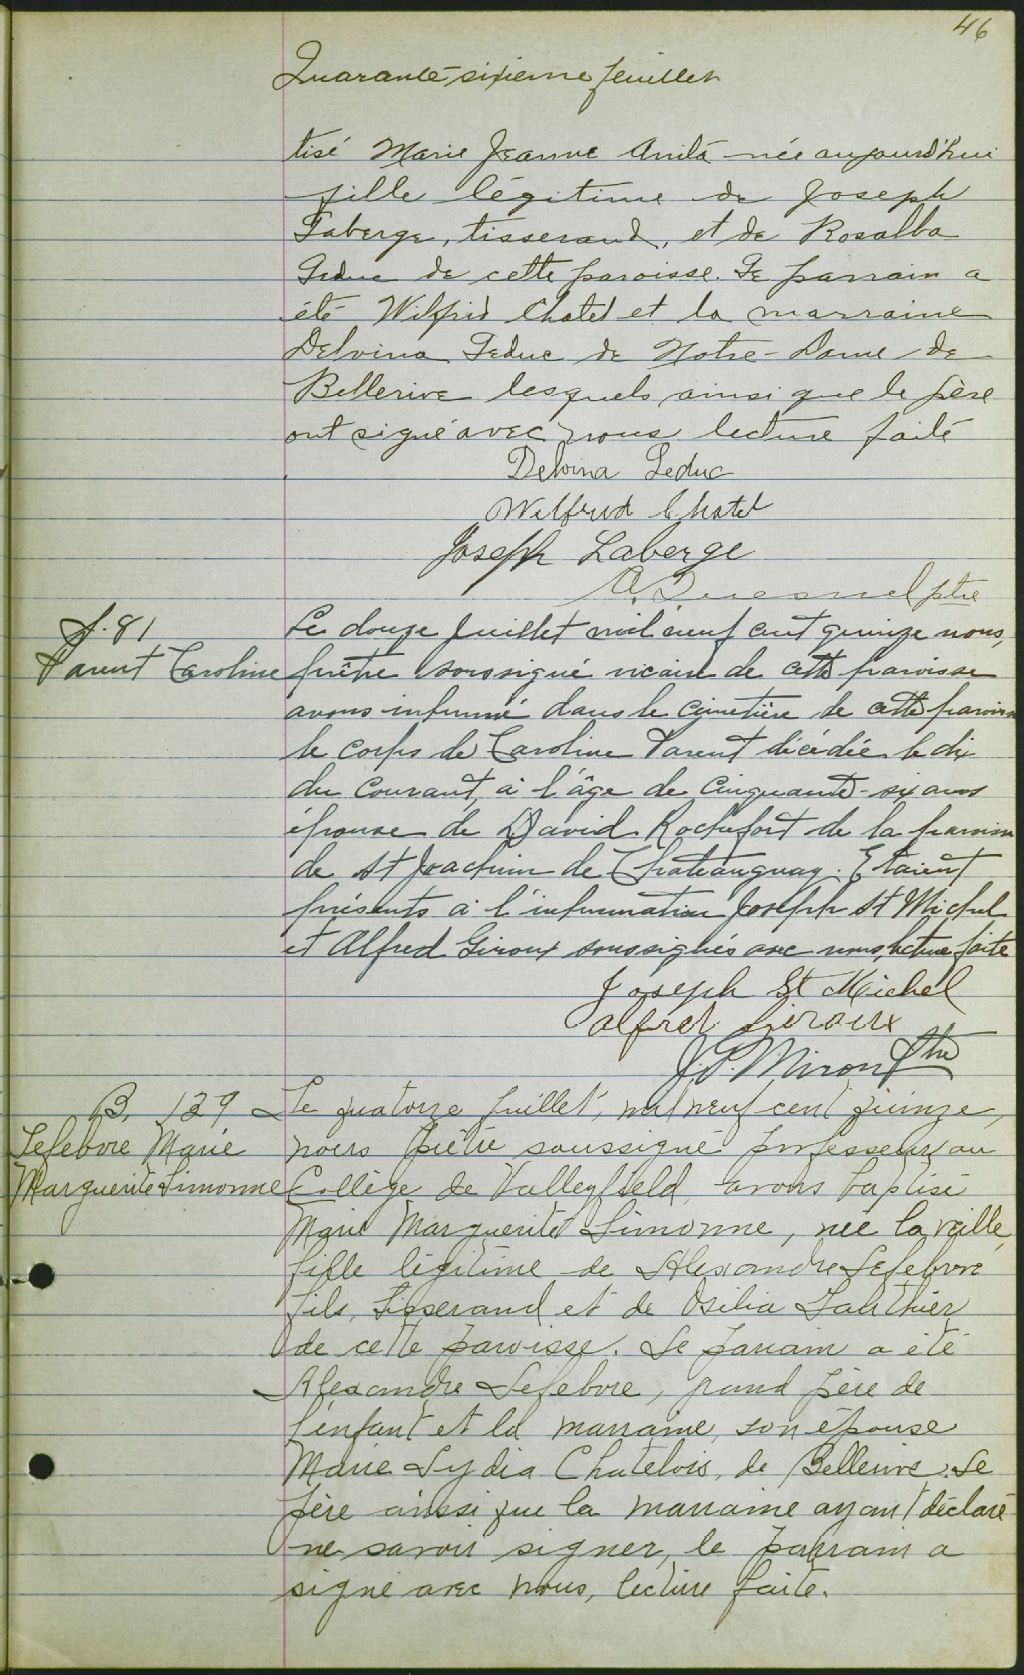 46
Quarante-sixième feuillet
tisé Marie Jeanne Anita née aujourd'hui
fille légitime de Joseph
Laberge, tisserand, et de Rosalba
Leduc de cette paroisse. Le parrain a
été Wilfrid Chatel et la marraine
Delvina Leduc de Notre-Dame de
Bellerive lesquels ainsi que le père
ont signé avec nous lecture faite
Delvina Leduc
Wilfrid Chatel
Joseph Laberge
A. Quesnel ptre
S. 81
Parent Caroline
Le douze Juillet mil neuf cent quinze nous,
prêtre soussigné vicaire de cette paroisse
avons inhumé dans le cimetière de cette paroisse
le corps de Caroline Parent décédée le dix
du courant, à l'âge de cinquante-six ans
épouse de David Rochefort de la paroisse
de St Joachim de Chateauguay. Etaient
présents à l'inhumation Joseph St Michel
et Alfred Giroux soussignés avec nous, lecture faite
Joseph St Michel
Alfred Giroux
J. P. Miron Ptre
B. 129
Lefebvre Marie
Marguerite Simonne
Le quatorze juillet, mil neuf cent quinze,
nous prêtre soussigné professeur au
Collège de Valleyfield, avons baptisé
Marie Marguerite Simonne, née la veille,
fille légitime de Alexandre Lefebvre
fils, tisserand et de Osilia Gauthier
de cette paroisse. Le parrain a été
Alexandre Lefebvre, grand père de
l'enfant et la marraine, son épouse
Marie Lydia Chatelois, de Bellerive. Le
père ainsi que la marraine ayant déclaré
ne savoir signer, le parrain a
signé avec nous, lecture faite.